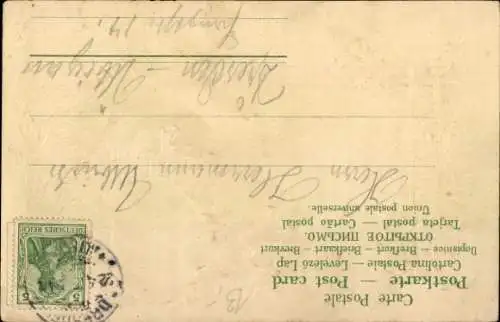 Carte Postale
Postkarte — Post card
Cartolina Postale — Levelező Lap
Dopisnice — Brefkort — Briefkaart — Brevkort
ОТКРЫТОЕ ПИСЬМО.
Tarjeta postal — Cartão postal
Union postale universelle.
Herrn Hermann
Dresden
DEUTSCHES REICH
5 5